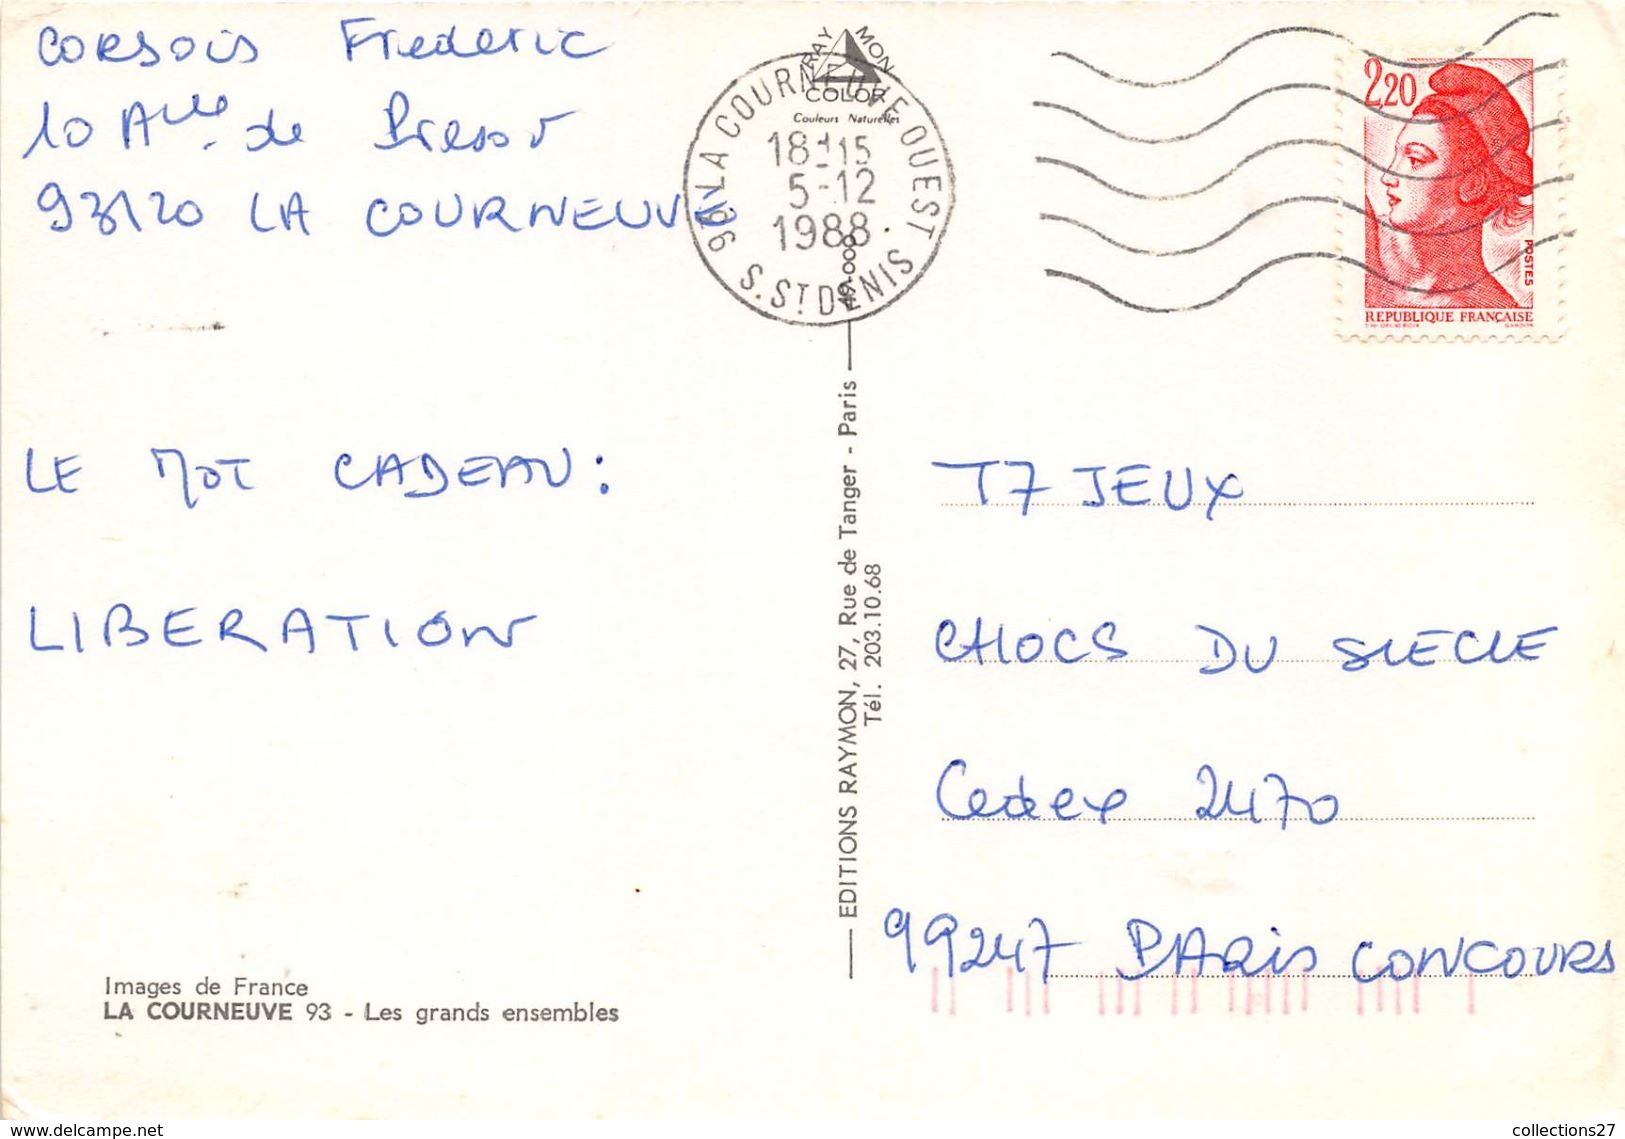 CORSOIS Frederic
10 Allée de Bresst
93120 LA COURNEUVE
LE MOT CADEAU :
LIBERATION
Images de France
LA COURNEUVE 93 - Les grands ensembles
RAYMON
COLOR
Couleurs Naturelles
93 LA COURNEUVE OUEST
18H15
5-12
1988
S. ST DENIS
EDITIONS RAYMON, 27, Rue de Tanger - Paris
Tél. 203.10.68
2,20
POSTES
REPUBLIQUE FRANÇAISE
T7 JEUX
CHOCS DU SIECLE
Cedex 2470
99247 PARIS CONCOURS
www.delcampe.net
collections27